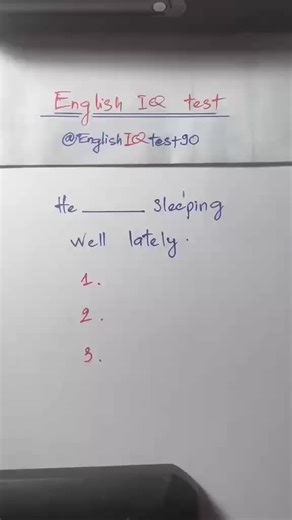 English IQ test
@EnglishIQtest90
He ______ sleeping
well lately.
1.
2.
3.